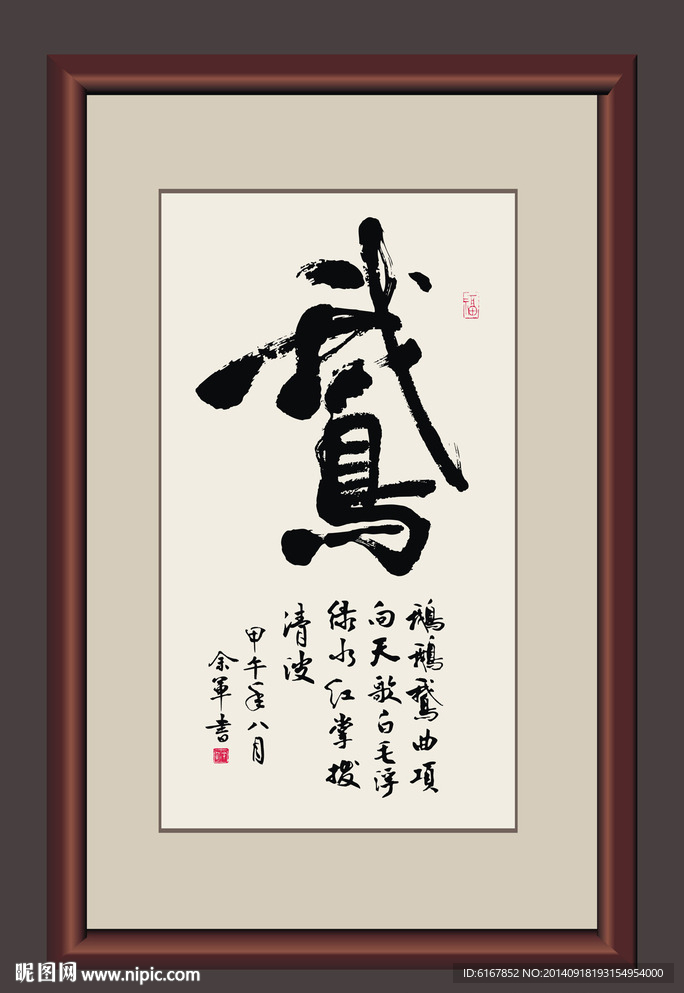 鵞
福
鵝鵝鵞曲項
向天歌白毛浮
绿水红掌拨
清波
甲午年八月
余軍書
昵图网 www.nipic.com
ID:6167852 NO:20140918193154954000